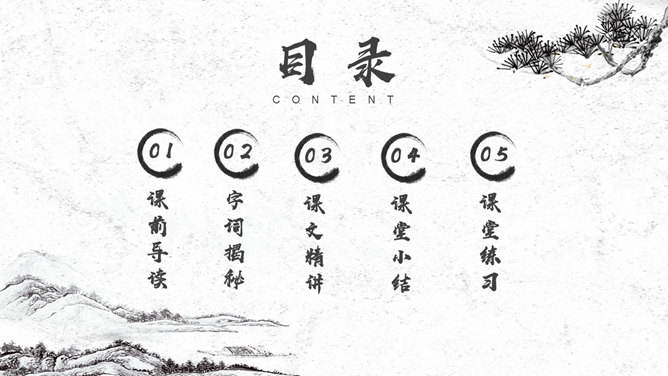 目录
CONTENT
01
课前导读
02
字词揭秘
03
课文精讲
04
课堂小结
05
课堂练习